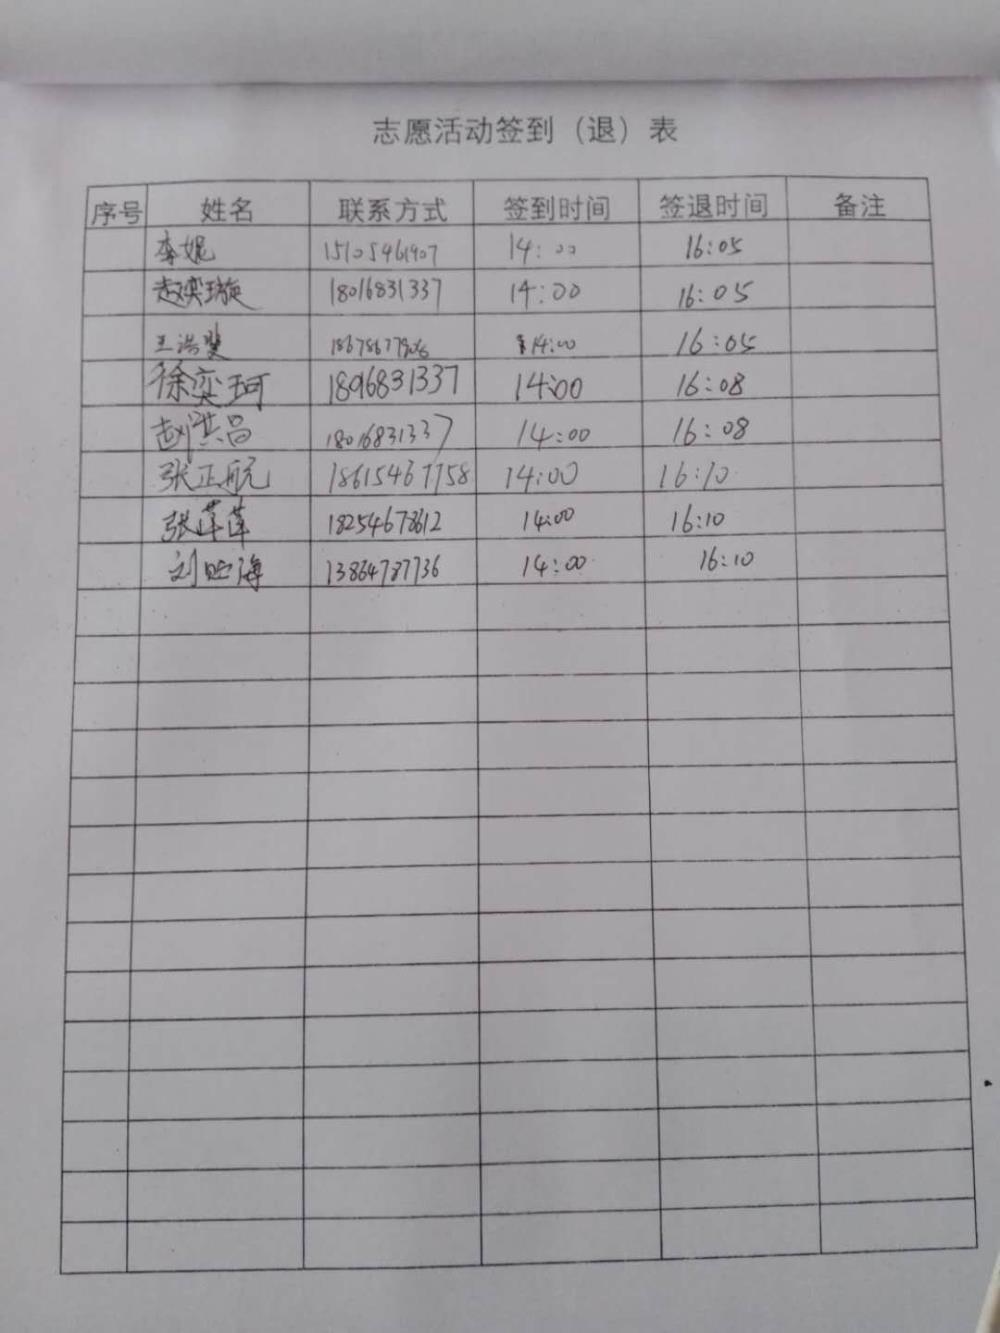 志愿活动签到（退）表
序号 姓名 联系方式 签到时间 签退时间 备注
李妮 15105461907 14:00 16:05
赵奕璇 18016831337 14:00 16:05
王浩斐 14:00 16:05
徐奕珂 18016831337 14:00 16:08
赵洪昌 18016831337 14:00 16:08
张正航 18615467758 14:00 16:10
张萍萍 18254678612 14:00 16:10
刘海 13864787736 14:00 16:10